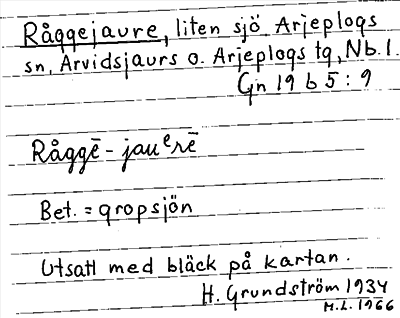 Råggejaure, liten sjö Arjeplogs
sn, Arvidsjaurs o. Arjeplogs tg, Nb. l.
Gn 19 b 5 : 9
Råggē - jauᵉrē
Bet. = gropsjön
Utsatt med bläck på kartan.
H. Grundström 1934
M.L. 1966